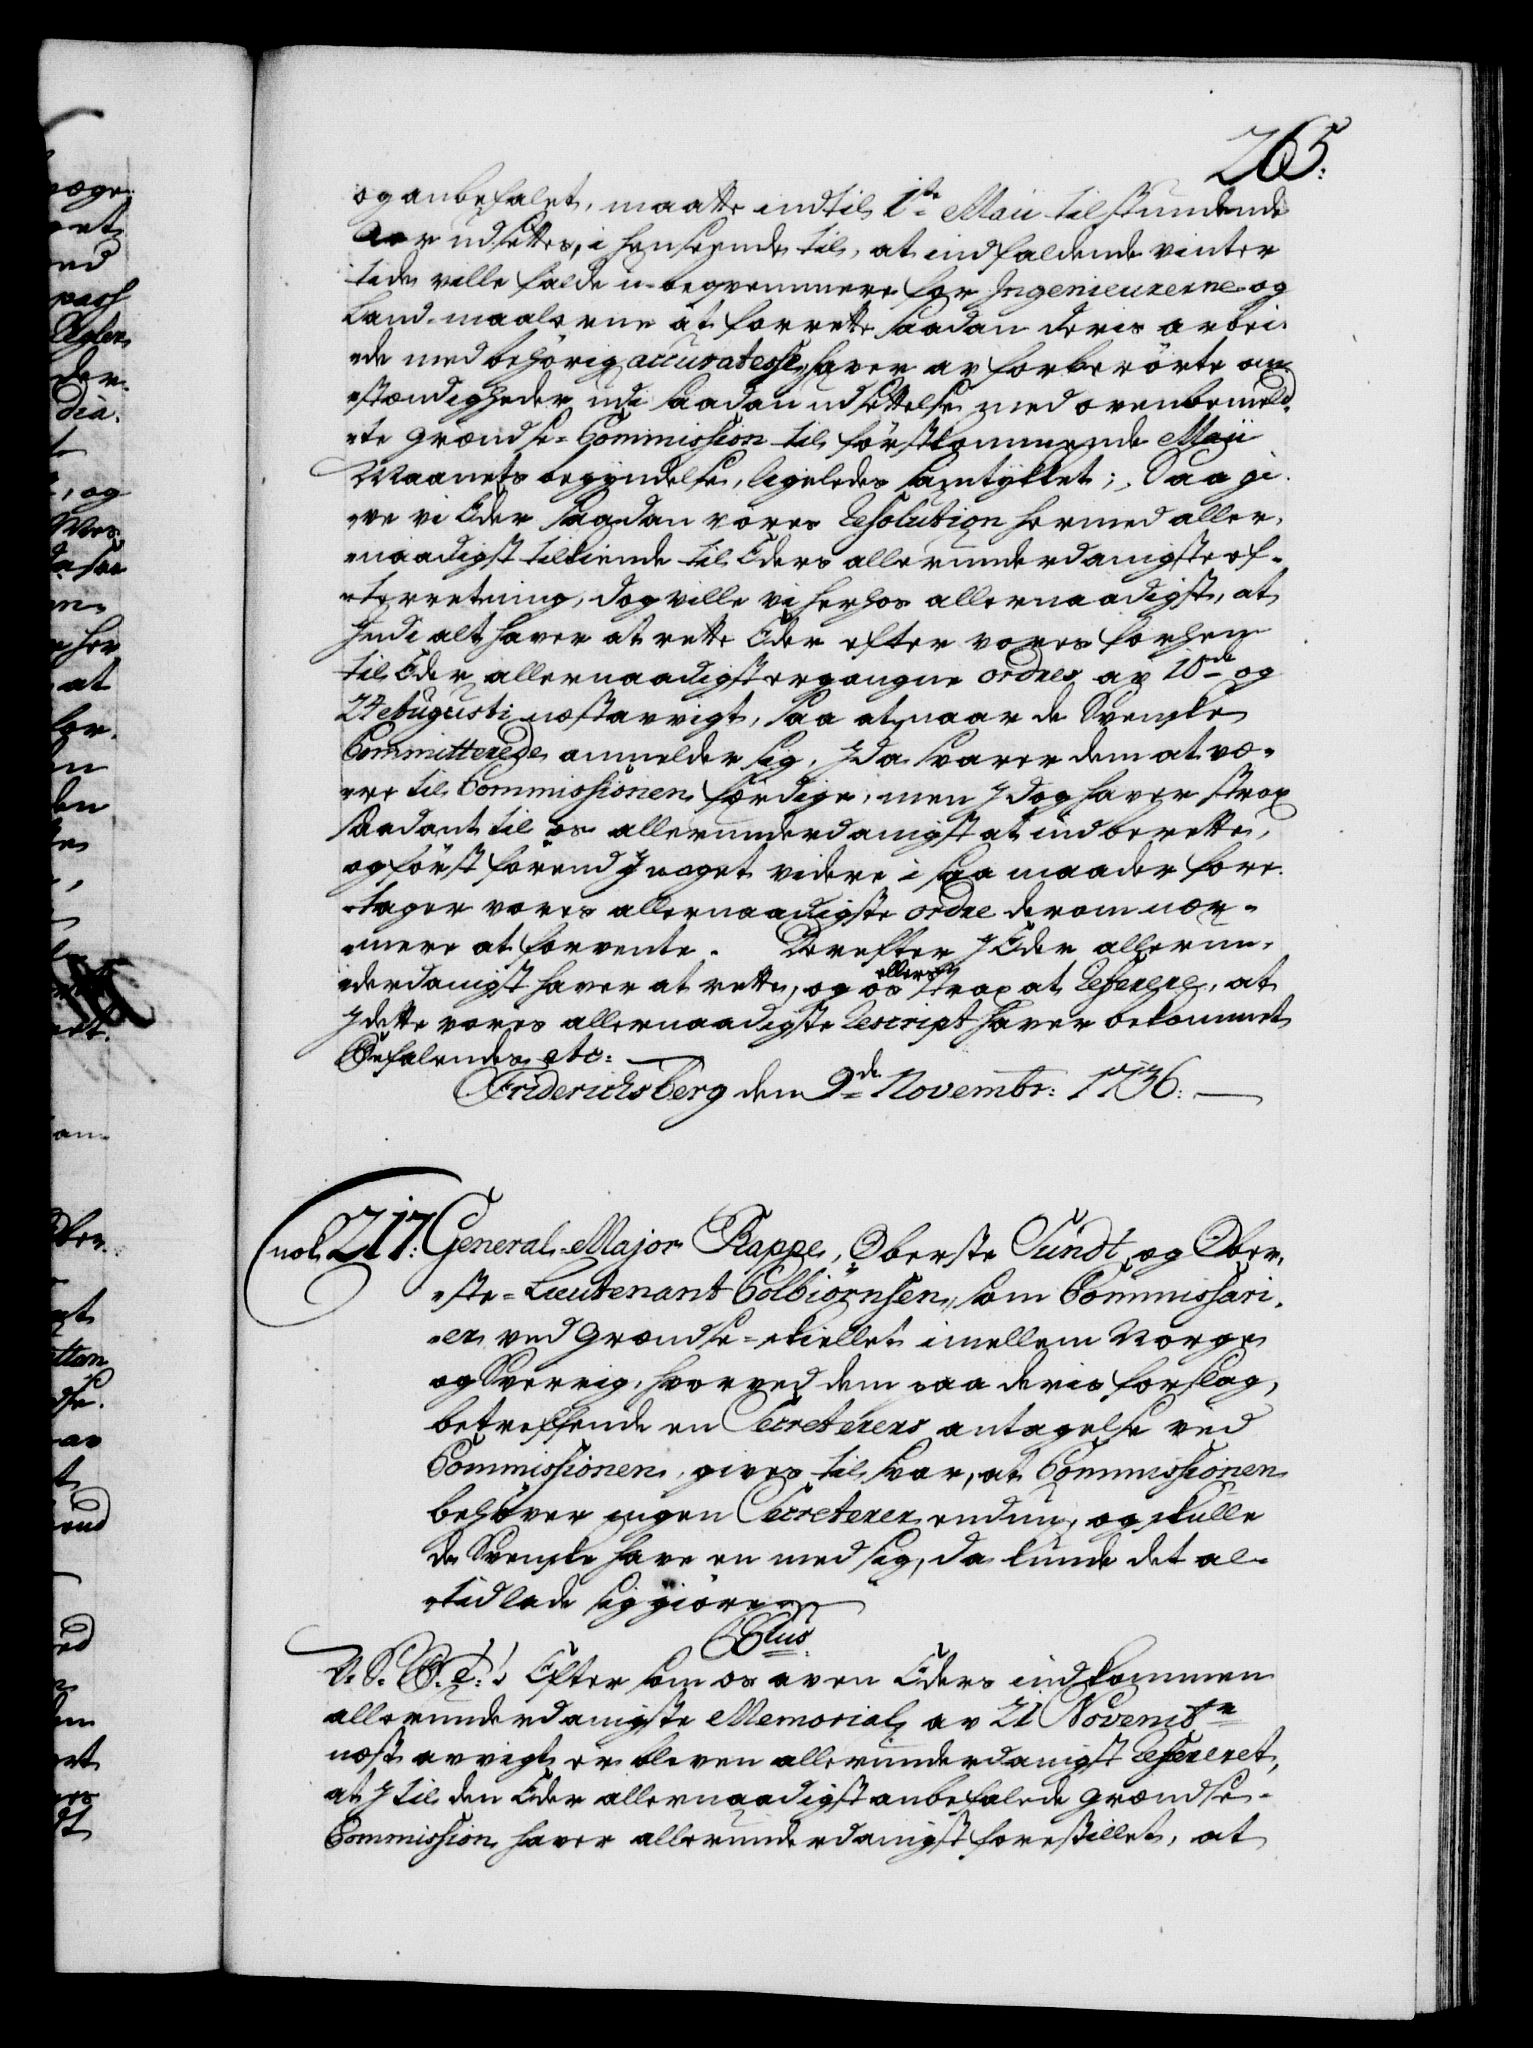 265.
og anbefalet, maatte indtil 1ste Maii tilstundende
Aar udsettes, i henseende til, at indfaldende vinter
tide ville falde u-beqvemmere for Ingenieurerne og
Land-maalerne at forrette saadan deris arbei-
de med behörig accuratesse, haver av forberörte om-
stændigheder udi saadan udsettelse med ovenbemeld-
te Grændse-Commission til förstkommende Maii
Maanets begyndelse, ligeledes samtykket; Saa gi-
ve vi Eder saadan vores Resolution hermed aller-
naadigst tilkiende til Eders allerunderdanigste ef-
terretning, dog ville vi herhos allernaadigst, at
I udi alt haver at rette Eder efter vores forhen
til Eder allernaadigst ergangne ordres av 10de og
24 Augusti næstavvigt, saa at naar de Svenske
Committerede anmelder sig, I da svarer dem at væ-
re til Commissionen færdige, men I dog haver strax
saadant til os allerunderdanigst at indberette,
og först förend I noget videre i saa maader fore-
tager vores allernaadigste ordre derom nær-
mere at forvente. Derefter I Eder allerun-
derdanigst haver at rette, og os ellers strax at Referere, at
I dette vores allernaadigste Rescript haver bekommet
Befalendes etc:
Friderichsberg den 9de Novembr: 1736.
No 217. General-Major Rappe, Oberste Sundt og Ober-
ste-Lieutenant Colbiörnsen, som Commissari-
er ved Grændse-skiellet imellem Norge
og Sverrig, hvorved dem paa deris forslag,
betreffende en Secreterers antagelse ved
Commissionen, gives til svar, at Commissionen
behöver ingen Secreterer endnu, og skulle
de Svenske have en med sig, da kunde det al-
tid lade sig giöre
C 6tus.
V. S. G. T.! Efter som os av en Eders indkommen
allerunderdanigste Memorial av 21 Novembr
næst avvigt er bleven allerunderdanigst Refereret,
at I til den Eder allernaadigst anbefalede Grændse-
Commission haver allerunderdanigst forestillet, at